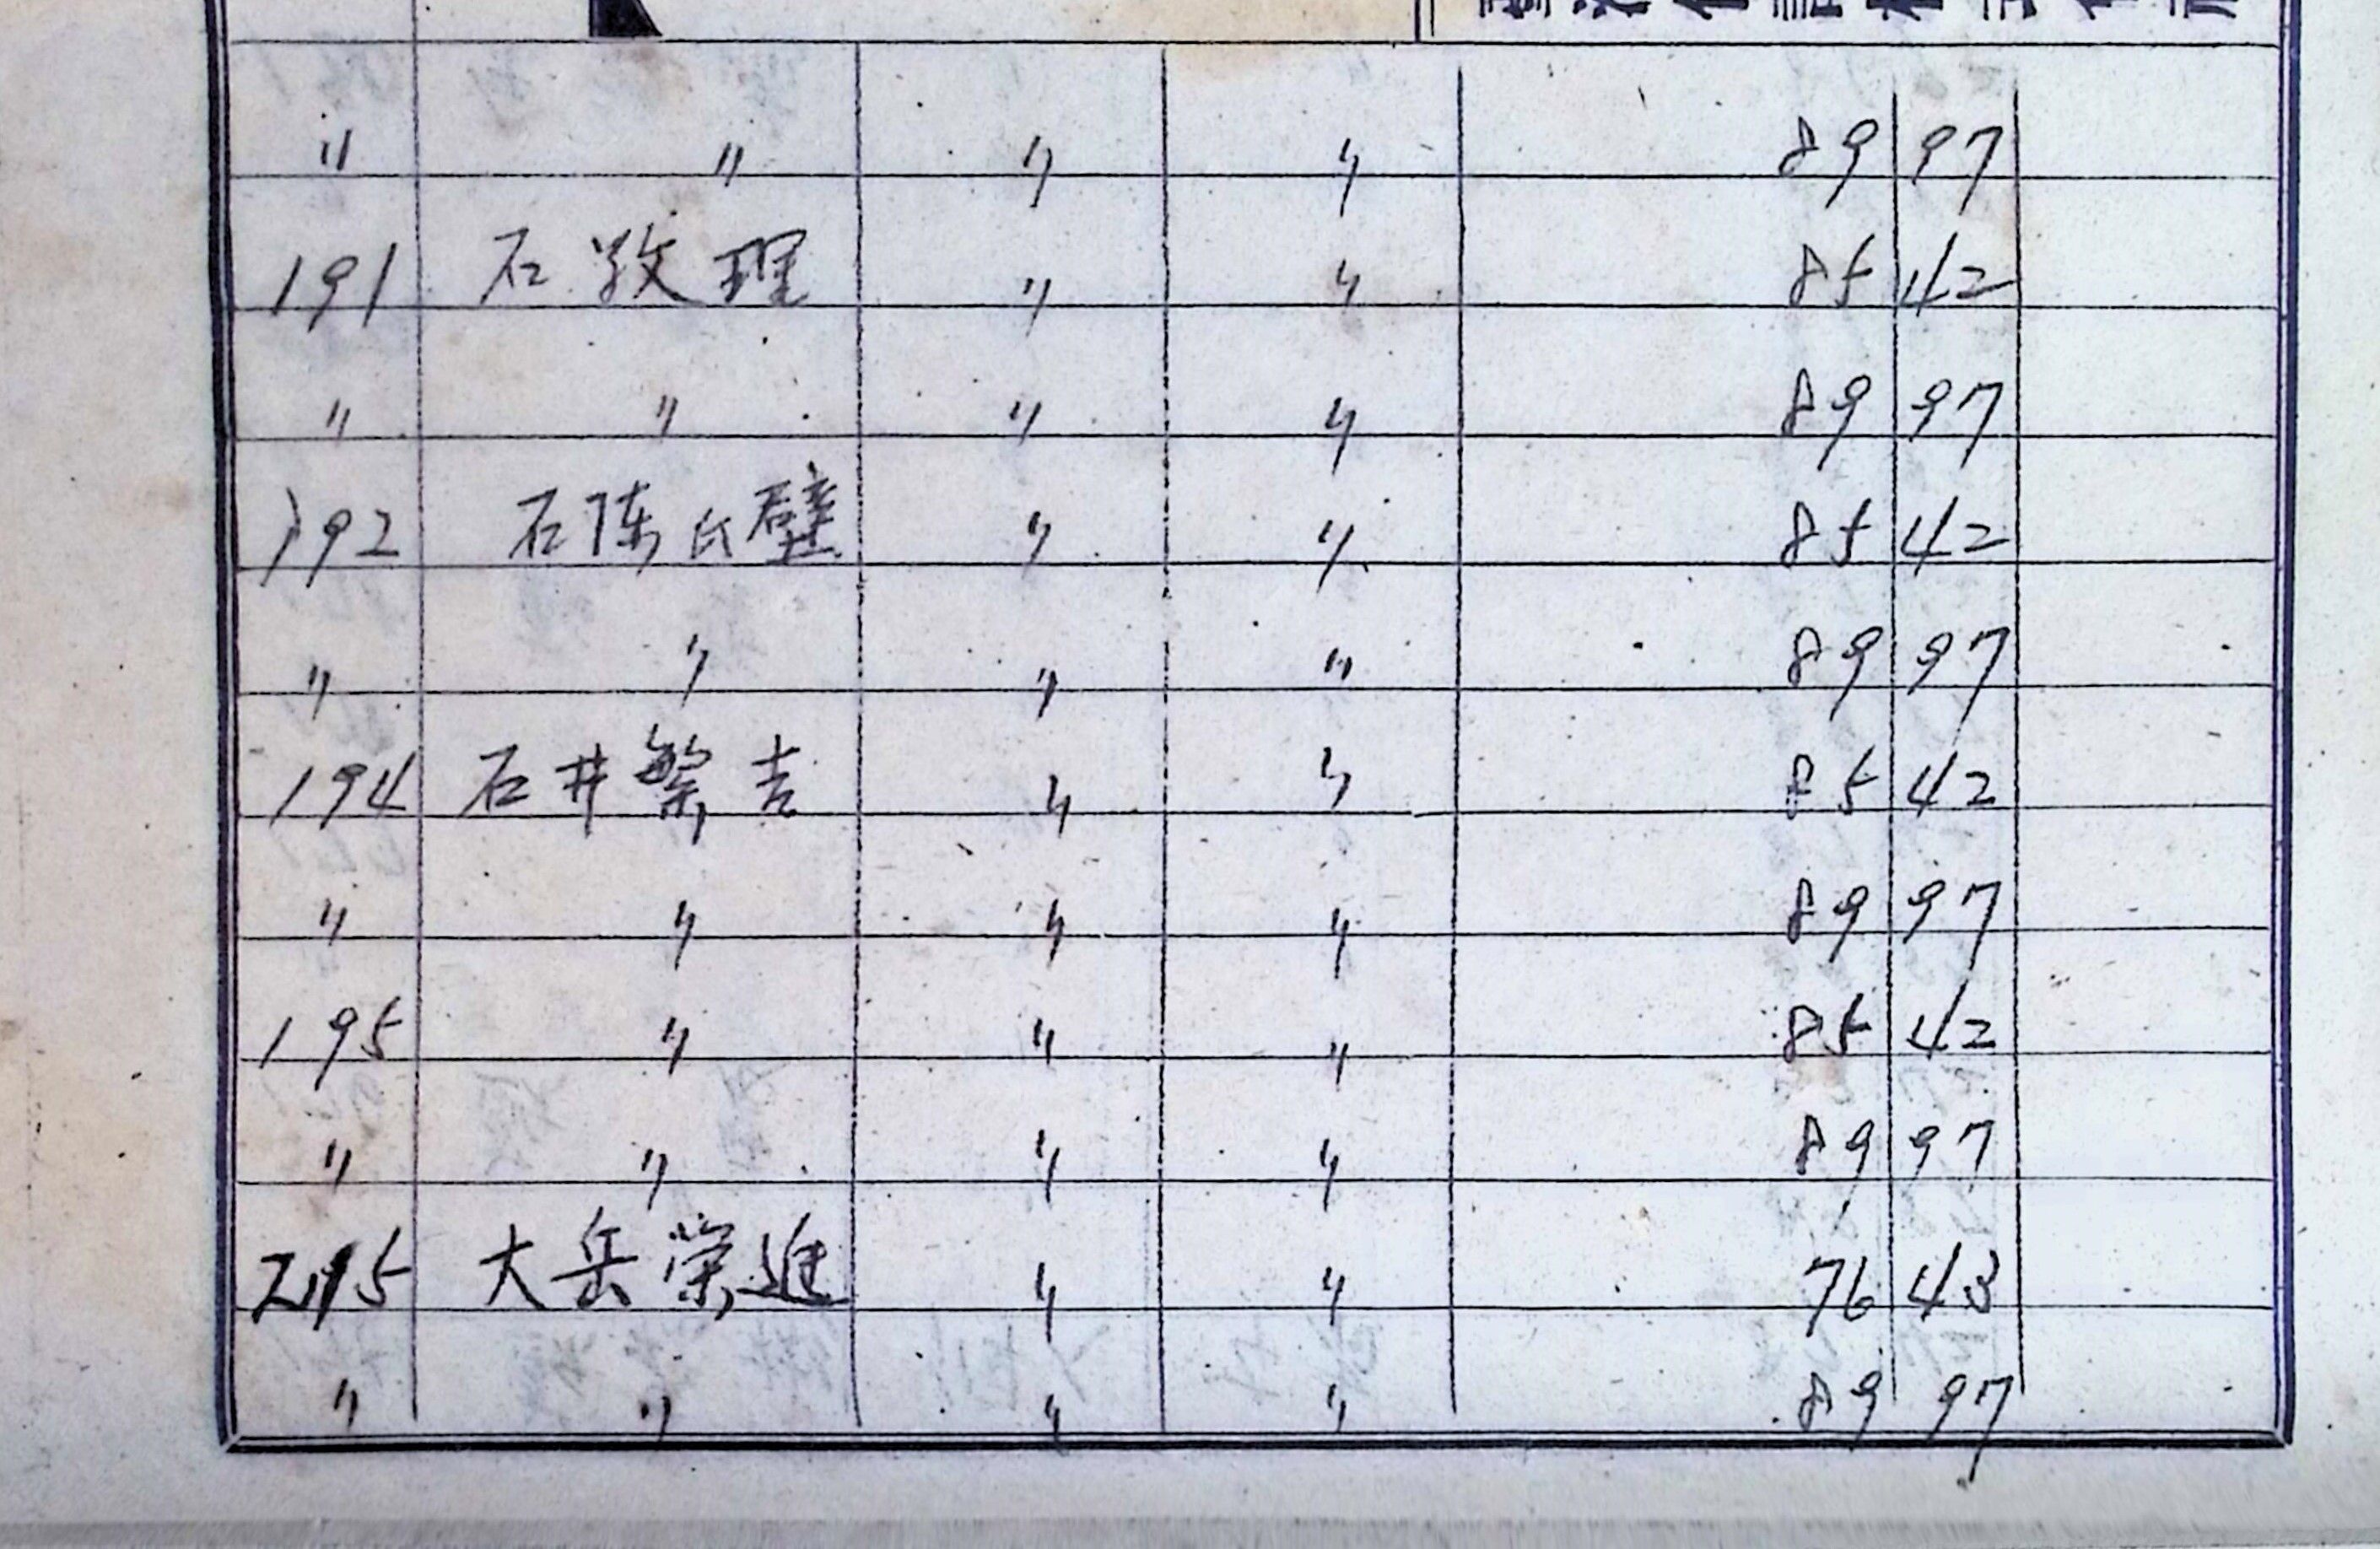 〃 〃 〃 〃 89 97
191 石敦理 〃 〃 85 42
〃 〃 〃 〃 89 97
192 石陈氏壁 〃 〃 85 42
〃 〃 〃 〃 89 97
194 石井繁吉 〃 〃 85 42
〃 〃 〃 〃 89 97
195 〃 〃 〃 85 42
〃 〃 〃 〃 89 97
215 大岳榮進 〃 〃 76 43
〃 〃 〃 〃 89 97